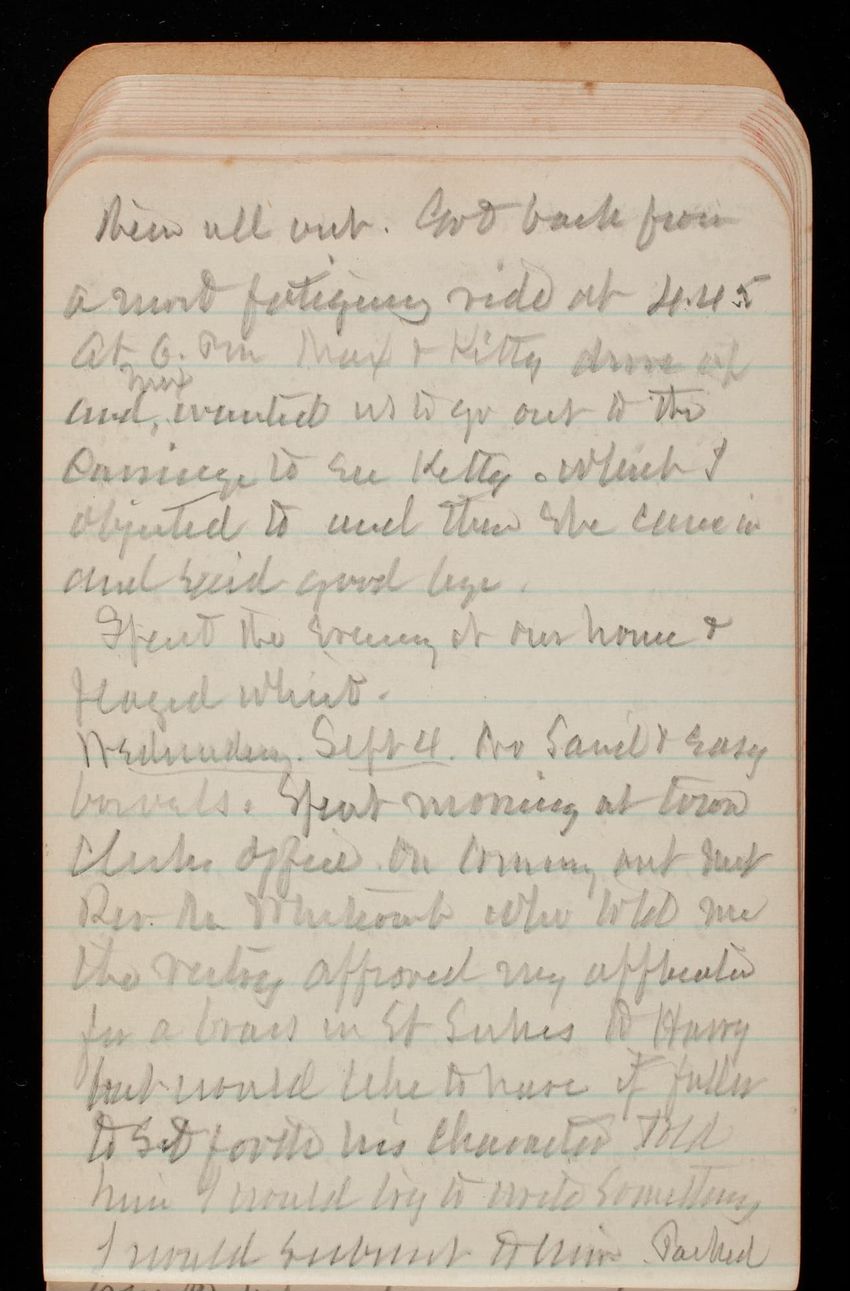 them all out. Got back from
a most fatiguing ride at 4.45
At 6. Pm Max & Kitty drove up
and, Max wanted us to go out to the
Carriage to see Kitty. which I
objected to and then she came in
and said good bye.
Spent the Evening at our house &
played whist.
Wednesday. Sept 4. Sand & Easy
bowels. Spent morning at town
Clerks office. On coming out met
Rev. Mr Whitcomb who told me
the vestry approved my application
for a brass in St Lukes to Harry
but would like to have it fuller
to Set forth his character Told
him I would try to write something
I would submit to him. Packed